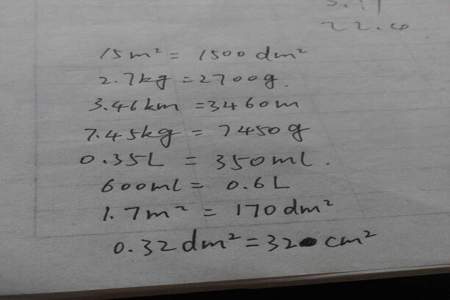 22.
15m² = 1500 dm²
2.7kg = 2700g.
3.46km = 3460m
7.45kg = 7450g
0.35L = 350ml.
600ml = 0.6L
1.7m² = 170dm²
0.32dm² = 32 cm²